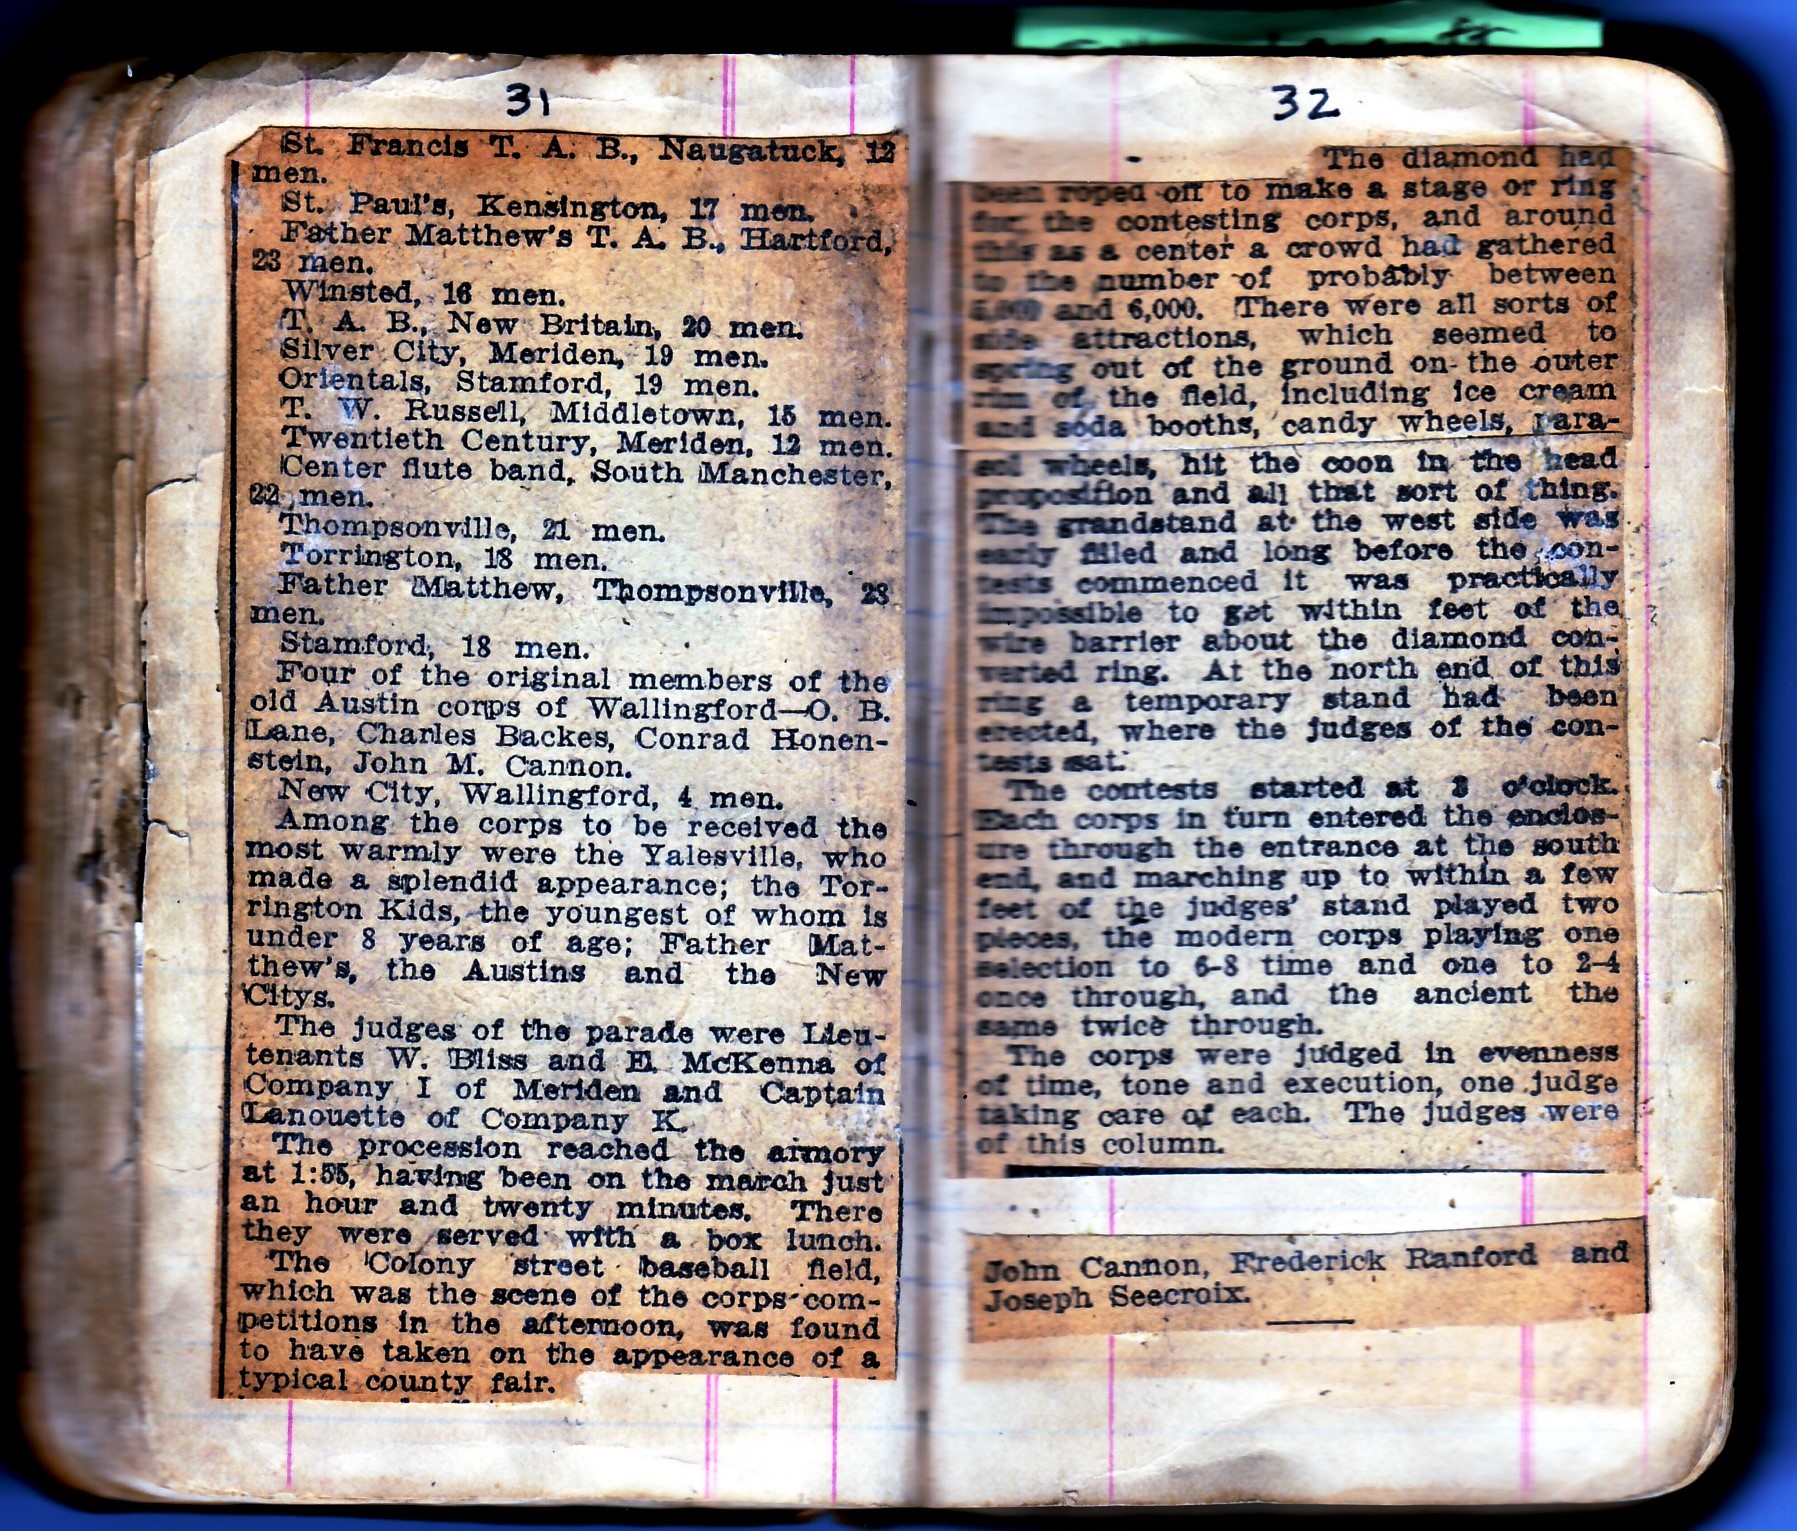 31
St. Francis T. A. B., Naugatuck, 12
men.
St. Paul's, Kensington, 17 men.
Father Matthew's T. A. B., Hartford,
23 men.
Winsted, 16 men.
T. A. B., New Britain, 20 men.
Silver City, Meriden, 19 men.
Orientals, Stamford, 19 men.
T. W. Russell, Middletown, 15 men.
Twentieth Century, Meriden, 12 men.
Center flute band, South Manchester,
22 men.
Thompsonville, 21 men.
Torrington, 18 men.
Father Matthew, Thompsonville, 23
men.
Stamford, 18 men.
Four of the original members of the
old Austin corps of Wallingford—O. B.
Lane, Charles Backes, Conrad Honen-
stein, John M. Cannon.
New City, Wallingford, 4 men.
Among the corps to be received the
most warmly were the Yalesville, who
made a splendid appearance; the Tor-
rington Kids, the youngest of whom is
under 8 years of age; Father Mat-
thew's, the Austins and the New
Citys.
The judges of the parade were Lieu-
tenants W. Bliss and E. McKenna of
Company I of Meriden and Captain
Lanouette of Company K.
The procession reached the armory
at 1:55, having been on the march just
an hour and twenty minutes. There
they were served with a box lunch.
The Colony street baseball field,
which was the scene of the corps com-
petitions in the afternoon, was found
to have taken on the appearance of a
typical county fair.
32
The diamond had
been roped off to make a stage or ring
for the contesting corps, and around
this as a center a crowd had gathered
to the number of probably between
5,000 and 6,000. There were all sorts of
side attractions, which seemed to
spring out of the ground on the outer
rim of the field, including ice cream
and soda booths, candy wheels, para-
sol wheels, hit the coon in the head
proposition and all that sort of thing.
The grandstand at the west side was
early filled and long before the con-
tests commenced it was practically
impossible to get within feet of the
wire barrier about the diamond con-
verted ring. At the north end of this
ring a temporary stand had been
erected, where the judges of the con-
tests sat.
The contests started at 3 o'clock.
Each corps in turn entered the enclos-
ure through the entrance at the south
end, and marching up to within a few
feet of the judges' stand played two
pieces, the modern corps playing one
selection to 6-8 time and one to 2-4
once through, and the ancient the
same twice through.
The corps were judged in evenness
of time, tone and execution, one judge
taking care of each. The judges were
of this column.
John Cannon, Frederick Ranford and
Joseph Seecroix.